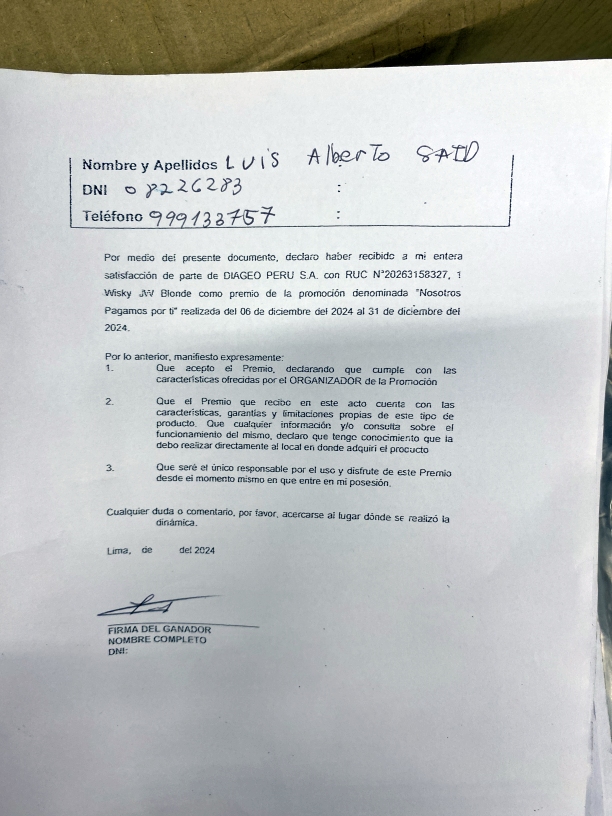 Nombre y Apellidos LUIS Alberto SAID
DNI 08226283 :
Teléfono 999133757 :
Por medio del presente documento, declaro haber recibido a mi entera
satisfacción de parte de DIAGEO PERU S.A. con RUC N°20263158327, 1
Wisky JW Blonde como premio de la promoción denominada "Nosotros
Pagamos por ti" realizada del 06 de diciembre del 2024 al 31 de diciembre del
2024.
Por lo anterior, manifiesto expresamente:
1. Que acepto el Premio, declarando que cumple con las
características ofrecidas por el ORGANIZADOR de la Promoción
2. Que el Premio que recibo en este acto cuenta con las
características, garantías y limitaciones propias de este tipo de
producto. Que cualquier información y/o consulta sobre el
funcionamiento del mismo, declaro que tengo conocimiento que la
debo realizar directamente al local en donde adquirí el producto
3. Que seré el único responsable por el uso y disfrute de este Premio
desde el momento mismo en que entre en mi posesión.
Cualquier duda o comentario, por favor, acercarse al lugar dónde se realizó la
dinámica.
Lima, de del 2024
FIRMA DEL GANADOR
NOMBRE COMPLETO
DNI: